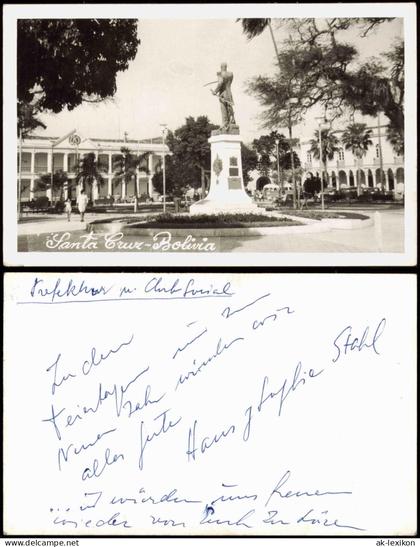 Santa Cruz - Bolivia
Prefektur u. Club Social
Zu den
Feiertagen und zum
Neuen Jahr wünschen wir
alles gute
Hans y Sophia Stahl
... und würden uns freuen
wieder von Euch zu hören
www.ansichtskarten-lexikon.de
ak-lexikon